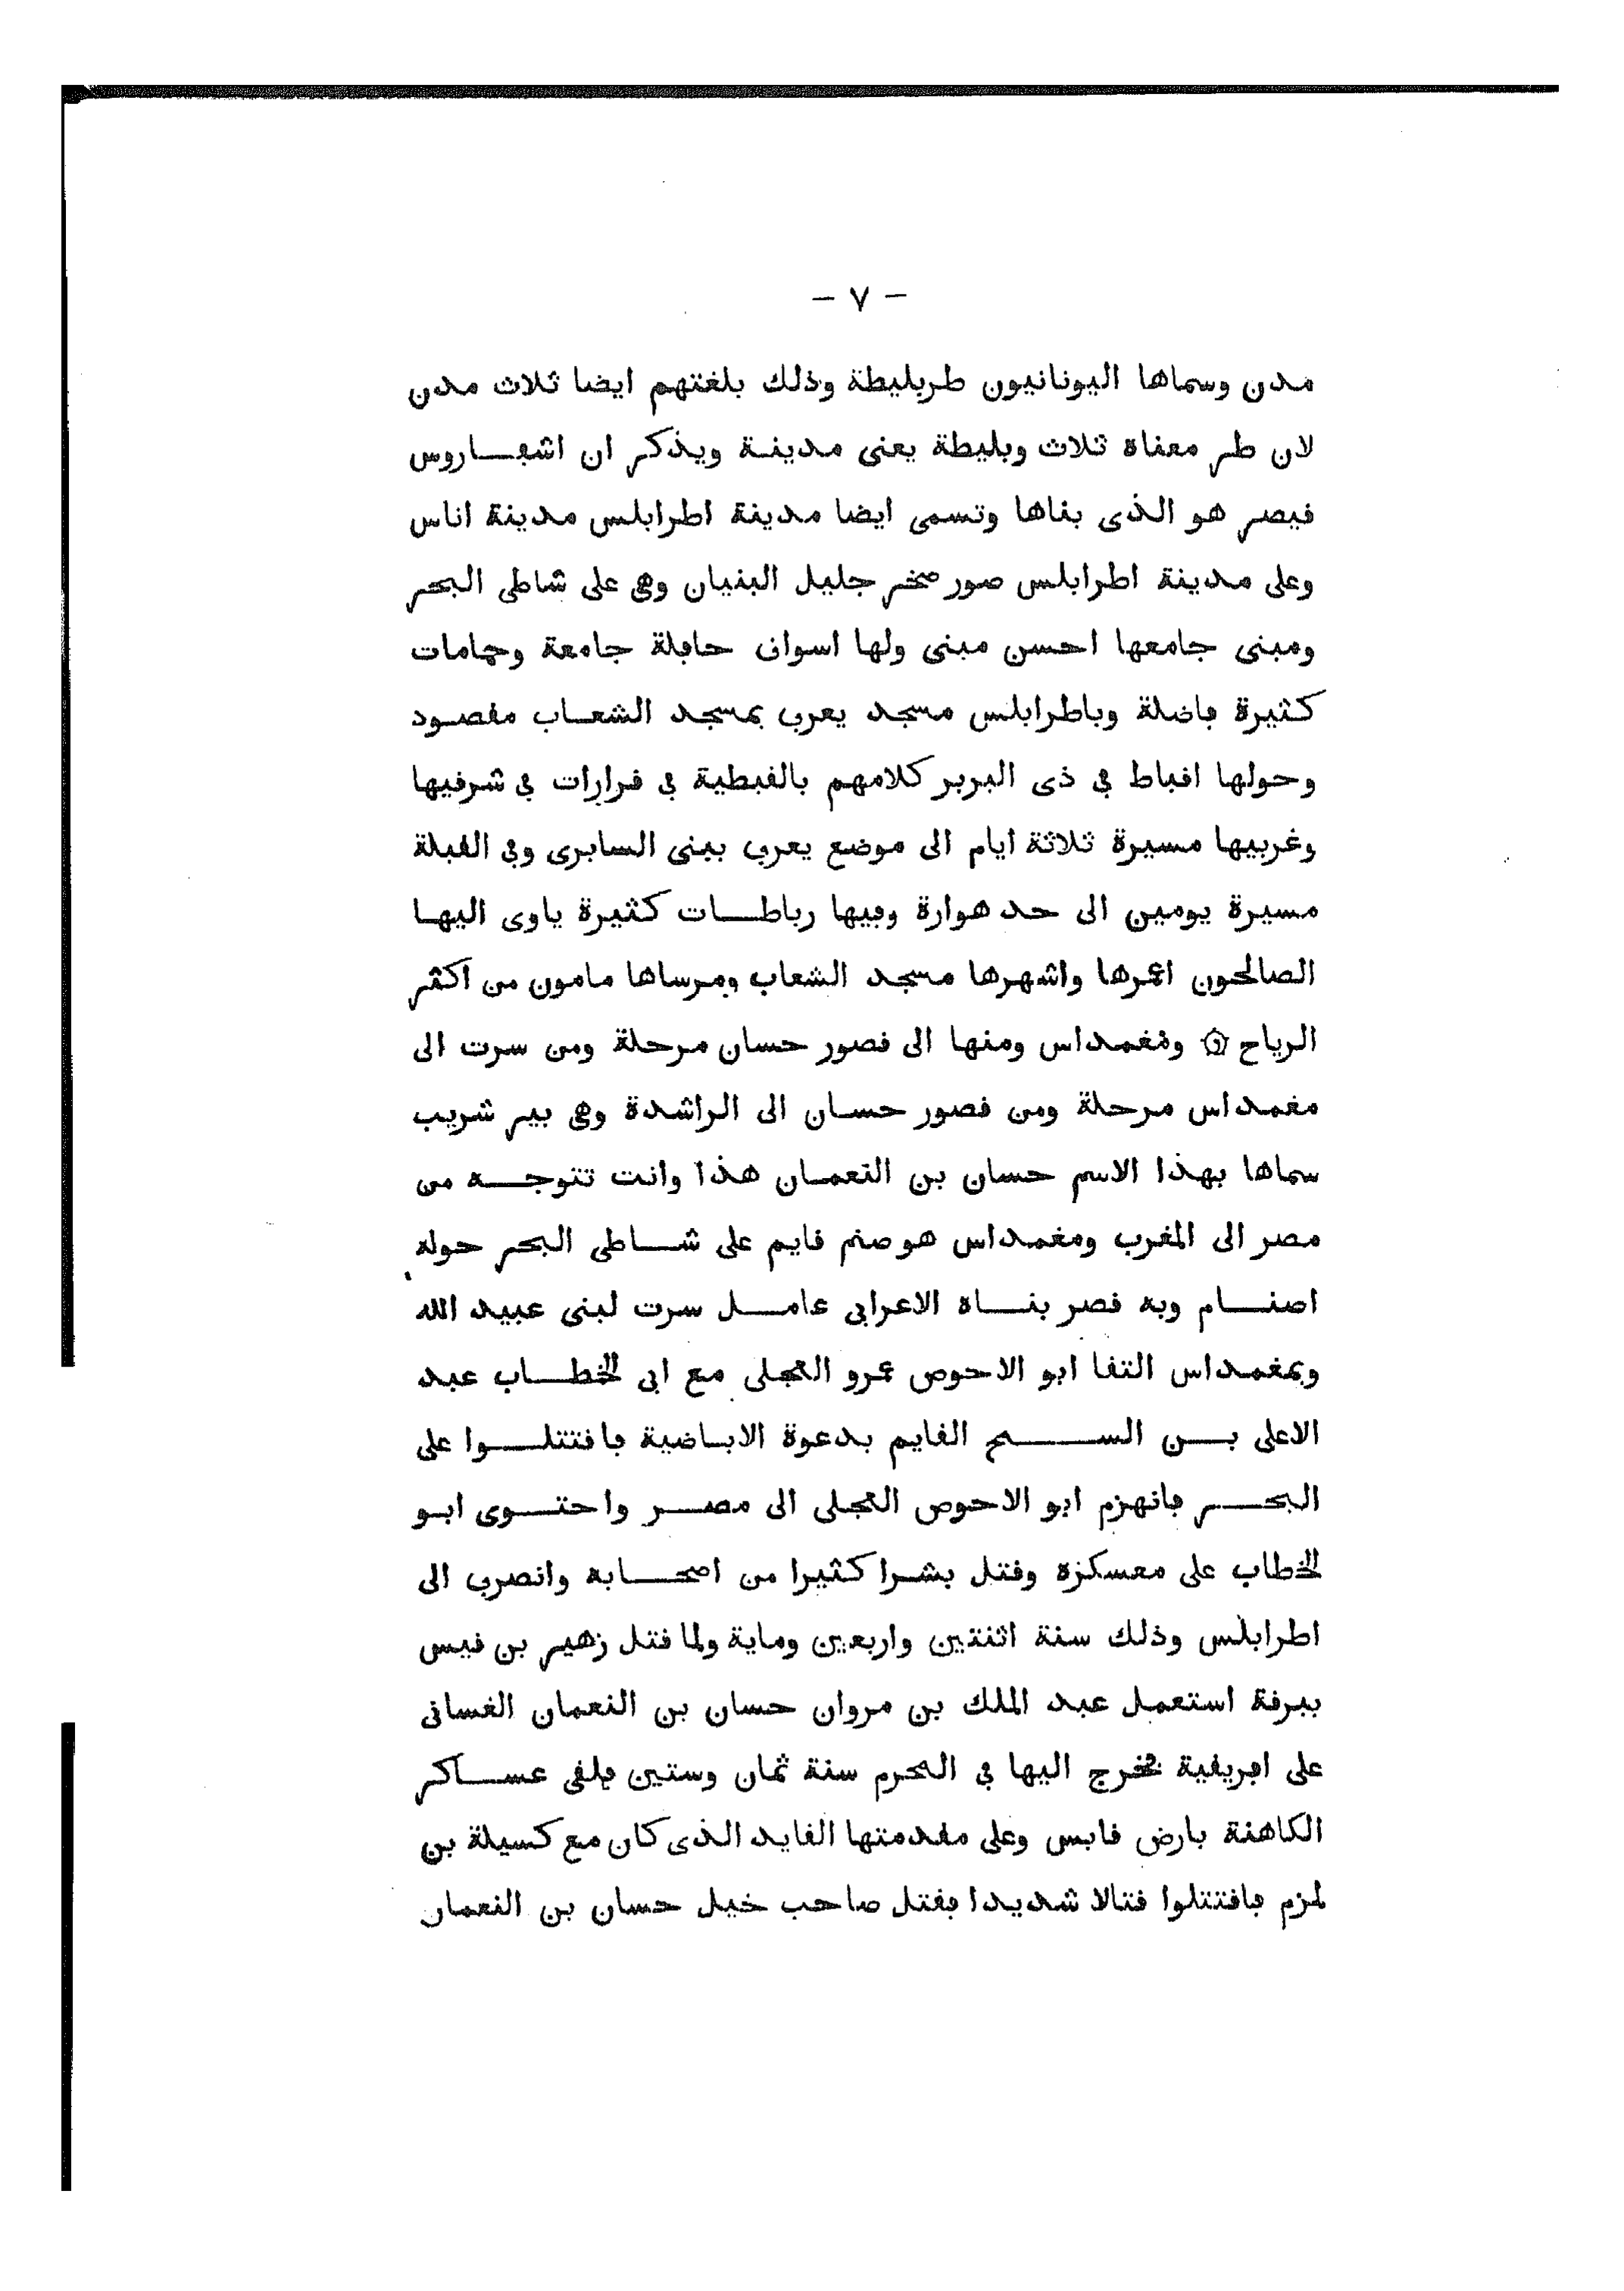 – ٧ –
مدن وسماها اليونانيون طربليطة وذلك بلغتهم ايضا ثلاث مدن
لان طر معناه ثلاث وبليطة يعنى مدينة ويذكر ان اشفاروس
قيصر هو الذى بناها وتسمى ايضا مدينة اطرابلس مدينة اناس
وعلى مدينة اطرابلس صور صخر جليل البنيان وهى على شاطى البحر
ومبنى جامعها احسن مبنى ولها اسواق حافلة جامعة وحمامات
كثيرة فاضلة وباطرابلس مسجد يعرف بمسجد الشعاب مقصود
وحولها اقباط فى ذى البربر كلامهم بالقبطية فى قرارات فى شرقيها
وغربيها مسيرة ثلاثة ايام الى موضع يعرف ببنى السابرى وفى القبلة
مسيرة يومين الى حد هوارة وفيها رباطات كثيرة ياوى اليها
الصالحون اعمرها واشهرها مسجد الشعاب ومرساها مامون من اكثر
الرياح ۞ ومغمداس ومنها الى قصور حسان مرحلة ومن سرت الى
مغمداس مرحلة ومن قصور حسان الى الراشدة وهى بير شريب
سماها بهذا الاسم حسان بن النعمان هذا وانت تتوجه من
مصر الى المغرب ومغمداس هو صنم قايم على شاطى البحر حوله
اصنام وبه قصر بناه الاعرابى عامل سرت لبنى عبيد الله
وبمغمداس التقا ابو الاحوص عمرو العجلى مع ابى الخطاب عبد
الاعلى بن السمح القايم بدعوة الاباضية فاقتتلوا على
البحر فانهزم ابو الاحوص العجلى الى مصر واحتوى ابو
الخطاب على معسكره وقتل بشرا كثيرا من اصحابه وانصرف الى
اطرابلس وذلك سنة اثنتين واربعين وماية ولما قتل زهير بن قيس
ببرقة استعمل عبد الملك بن مروان حسان بن النعمان الغسانى
على افريقية فخرج اليها فى المحرم سنة ثمان وستين فلقى عساكر
الكاهنة بارض قابس وعلى مقدمتها القايد الذى كان مع كسيلة بن
لمزم فاقتتلوا قتالا شديدا فقتل صاحب خيل حسان بن النعمان